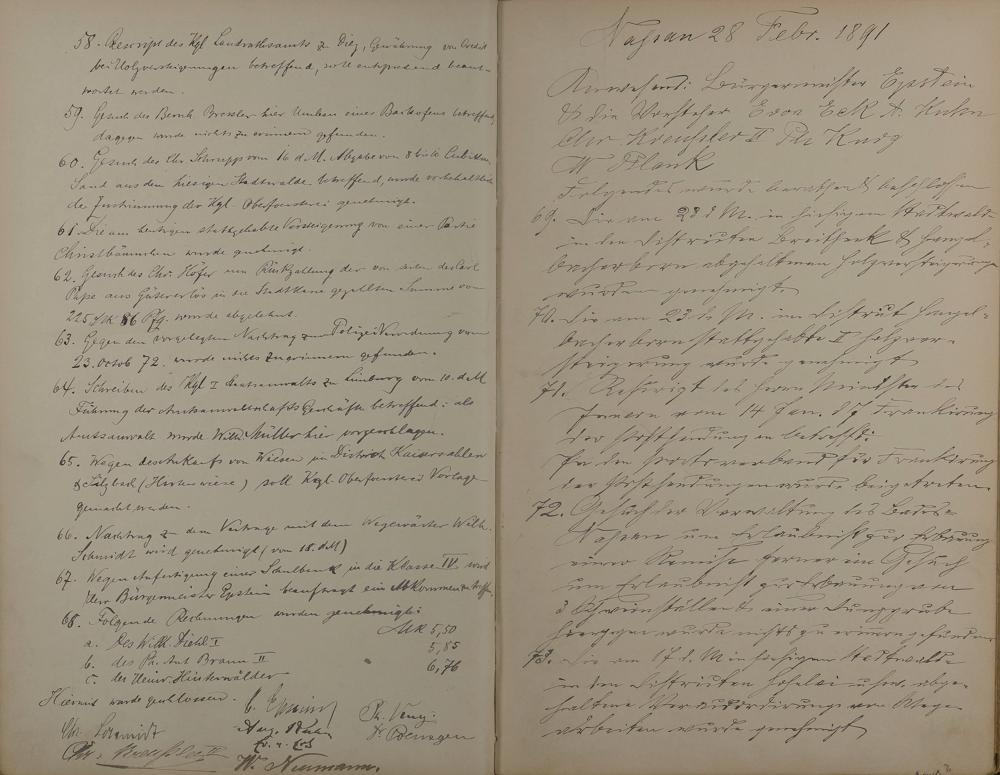 58. Rescript des Kgl Landrathsamts zu Diez, Gewährung von Credit
bei Holzversteigerungen betreffend, soll entsprechend beant-
wortet werden.
59. Gesuch des Bernh Bressler hier Umbau eines Backofens betreffend,
dagegen wurde nichts zu erinnern gefunden.
60. Gesuch des Chr. Schrupp vom 16 d.M. Abgabe von 8 bis 10 Cubikm
Sand aus dem hiesigen Stadtwalde betreffend, wurde vorbehaltlich
der Zustimmung der Kgl. Oberförsterei genehmigt.
61. Die am heutigen stattgehabte Versteigerung von einer Partie
Christbäumchen wurde genehmigt.
62. Gesuch des Chr. Höfer um Rückzahlung der von seiten des Carl
Pape aus Gütererlös in die Stadtkasse gezahlten Summe von
225 Mk 86 Pfg. wurde abgelehnt.
63. Gegen den vorgelegten Nachtrag zum Polizei Verordnung vom
23. Octob 72. wurde nichts zu erinnern gefunden.
64. Schreiben des Kgl I Staatsanwalts zu Limburg vom 10. d.M
Führung der Amtsanwaltschafts Geschäfte betreffend: als
Amtsanwalt wurde Wilh. Müller hier vorgeschlagen.
65. Wegen des Ankaufs von Wiesen im District Kaisersahlen
& Sulzbach (Hirtenwiese) soll Kgl. Oberförsterei Vorlage
gemacht werden.
66. Nachtrag zu dem Vertrage mit dem Wegewärter Wilh.
Schmidt wird genehmigt (vom 18. d.M)
67. Wegen Anfertigung einer Schulbank in die Klasse IV wird
Herr Bürgermeister Epstein beauftragt ein Abkommen zu treffen.
68. Folgende Rechnungen wurden genehmigt:
a. Des Wilh. Diehl I Mk 5,50
b. des Ph. Ant Braun II 5,85
c. des Heinr. Hinterwälder 6,76
Hiermit wurde geschlossen.
Chr. Schmidt
W. Neumann.
Nassau 28 Febr. 1891
Anwesend: Bürgermeister Epstein
& die Vorsteher Eck A. Kuhn
Chr Kreußler II Ph Kurz
W Plank
Folgendes wurde berathen & beschlossen
69. Die am 28 d M. im hiesigen Stadtwald
in den Distrikten Breitheck & Hengel-
bacherborn abgehaltenen Holzversteigerungen
wurden genehmigt
70. Die am 23 d. M. im Distrikt Hengel-
bacherborn stattgehabte II Holzver-
steigerung wurde genehmigt
71. Rescript des Herrn Ministers des
Innern vom 14 Jan. d J Frankirung
der Postsendungen betreffd:
der Postsendungen wurde beigetreten.
72. Gesuch der Verwaltung des Bades
Nassau um Erlaubniß zur Erbauung
einer Remise ferner ein Gesuch
um Erlaubniß zur Erbauung von
3 Schweinställen & einer Dunggrube
hiergegen wurde nichts zu erinnern gefunden
73. Die am 17 d. M im hiesigen Stadtwald
in den Distrikten abge-
haltene von Wege-
arbeiten wurde genehmigt